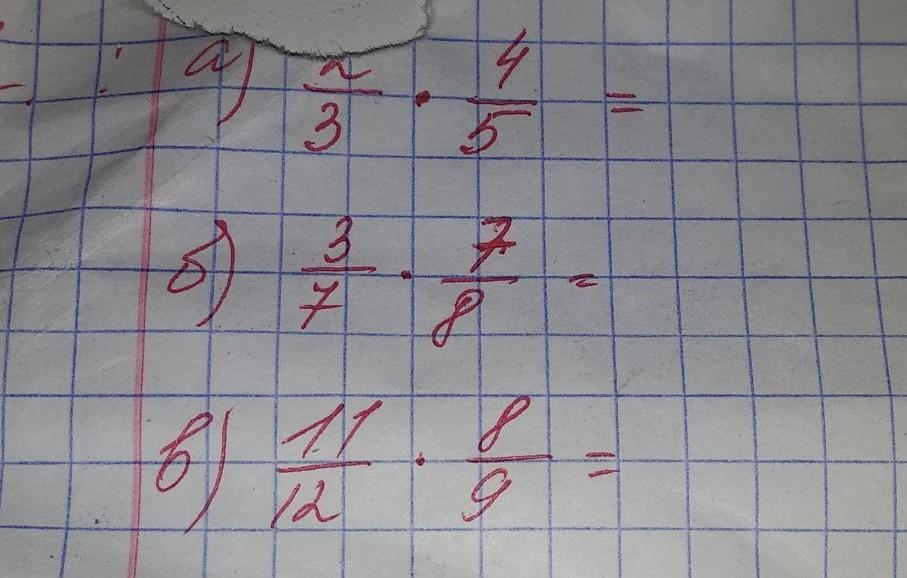 а) 2/3 · 4/5 =
б) 3/7 · 7/8 =
в) 11/12 · 8/9 =